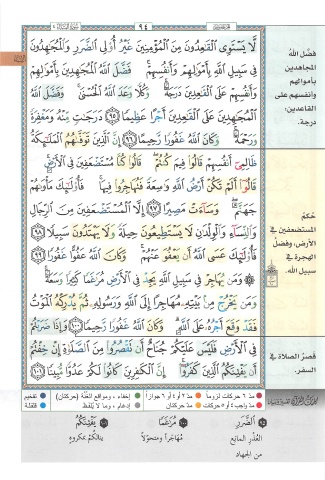 ٩٤
لَّا يَسْتَوِى ٱلْقَٰعِدُونَ مِنَ ٱلْمُؤْمِنِينَ غَيْرُ أُو۟لِى ٱلضَّرَرِ وَٱلْمُجَٰهِدُونَ
فِى سَبِيلِ ٱللَّهِ بِأَمْوَٰلِهِمْ وَأَنفُسِهِمْ ۚ فَضَّلَ ٱللَّهُ ٱلْمُجَٰهِدِينَ بِأَمْوَٰلِهِمْ
وَأَنفُسِهِمْ عَلَى ٱلْقَٰعِدِينَ دَرَجَةً ۚ وَكُلًّا وَعَدَ ٱللَّهُ ٱلْحُسْنَىٰ ۚ وَفَضَّلَ ٱللَّهُ
ٱلْمُجَٰهِدِينَ عَلَى ٱلْقَٰعِدِينَ أَجْرًا عَظِيمًا ۝٩٥ دَرَجَٰتٍ مِّنْهُ وَمَغْفِرَةً
وَرَحْمَةً ۚ وَكَانَ ٱللَّهُ غَفُورًا رَّحِيمًا ۝٩٦ إِنَّ ٱلَّذِينَ تَوَفَّىٰهُمُ ٱلْمَلَٰٓئِكَةُ
ظَالِمِىٓ أَنفُسِهِمْ قَالُوا۟ فِيمَ كُنتُمْ ۖ قَالُوا۟ كُنَّا مُسْتَضْعَفِينَ فِى ٱلْأَرْضِ ۚ
قَالُوٓا۟ أَلَمْ تَكُنْ أَرْضُ ٱللَّهِ وَٰسِعَةً فَتُهَاجِرُوا۟ فِيهَا ۚ فَأُو۟لَٰٓئِكَ مَأْوَىٰهُمْ
جَهَنَّمُ ۖ وَسَآءَتْ مَصِيرًا ۝٩٧ إِلَّا ٱلْمُسْتَضْعَفِينَ مِنَ ٱلرِّجَالِ
وَٱلنِّسَآءِ وَٱلْوِلْدَٰنِ لَا يَسْتَطِيعُونَ حِيلَةً وَلَا يَهْتَدُونَ سَبِيلًا ۝٩٨
فَأُو۟لَٰٓئِكَ عَسَى ٱللَّهُ أَن يَعْفُوَ عَنْهُمْ ۚ وَكَانَ ٱللَّهُ عَفُوًّا غَفُورًا ۝٩٩
۞ وَمَن يُهَاجِرْ فِى سَبِيلِ ٱللَّهِ يَجِدْ فِى ٱلْأَرْضِ مُرَٰغَمًا كَثِيرًا وَسَعَةً ۚ
وَمَن يَخْرُجْ مِنۢ بَيْتِهِۦ مُهَاجِرًا إِلَى ٱللَّهِ وَرَسُولِهِۦ ثُمَّ يُدْرِكْهُ ٱلْمَوْتُ
فَقَدْ وَقَعَ أَجْرُهُۥ عَلَى ٱللَّهِ ۗ وَكَانَ ٱللَّهُ غَفُورًا رَّحِيمًا ۝١٠٠ وَإِذَا ضَرَبْتُمْ
فِى ٱلْأَرْضِ فَلَيْسَ عَلَيْكُمْ جُنَاحٌ أَن تَقْصُرُوا۟ مِنَ ٱلصَّلَوٰةِ إِنْ خِفْتُمْ
أَن يَفْتِنَكُمُ ٱلَّذِينَ كَفَرُوٓا۟ ۚ إِنَّ ٱلْكَٰفِرِينَ كَانُوا۟ لَكُمْ عَدُوًّا مُّبِينًا ۝١٠١
فضّل الله
المجاهدين
بأموالهم
وأنفسهم على
القاعدين،
درجة.
حُكمُ
المستضعفين في
الأرض، وفضل
الهجرة في
سبيل الله.
قصرُ الصلاة في
السفر.
مدّ ٦ حركات لزوماً
مدّ ٢ أو ٤ أو ٦ جوازاً
إخفاء، ومواقع الغُنَّة (حركتان)
تفخيم
مدّ واجب ٤ أو ٥ حركات
مدّ حركتان
إدغام، وما لا يُلفَظ
قلقلة
٩٥ الضَّرَرِ
العُذْرِ المانِعِ
من الجهاد
١٠٠ مُرَاغَمًا
مُهاجَراً ومتحوّلاً
١٠١ يَفْتِنَكُمُ
ينالكُم بمكروهٍ